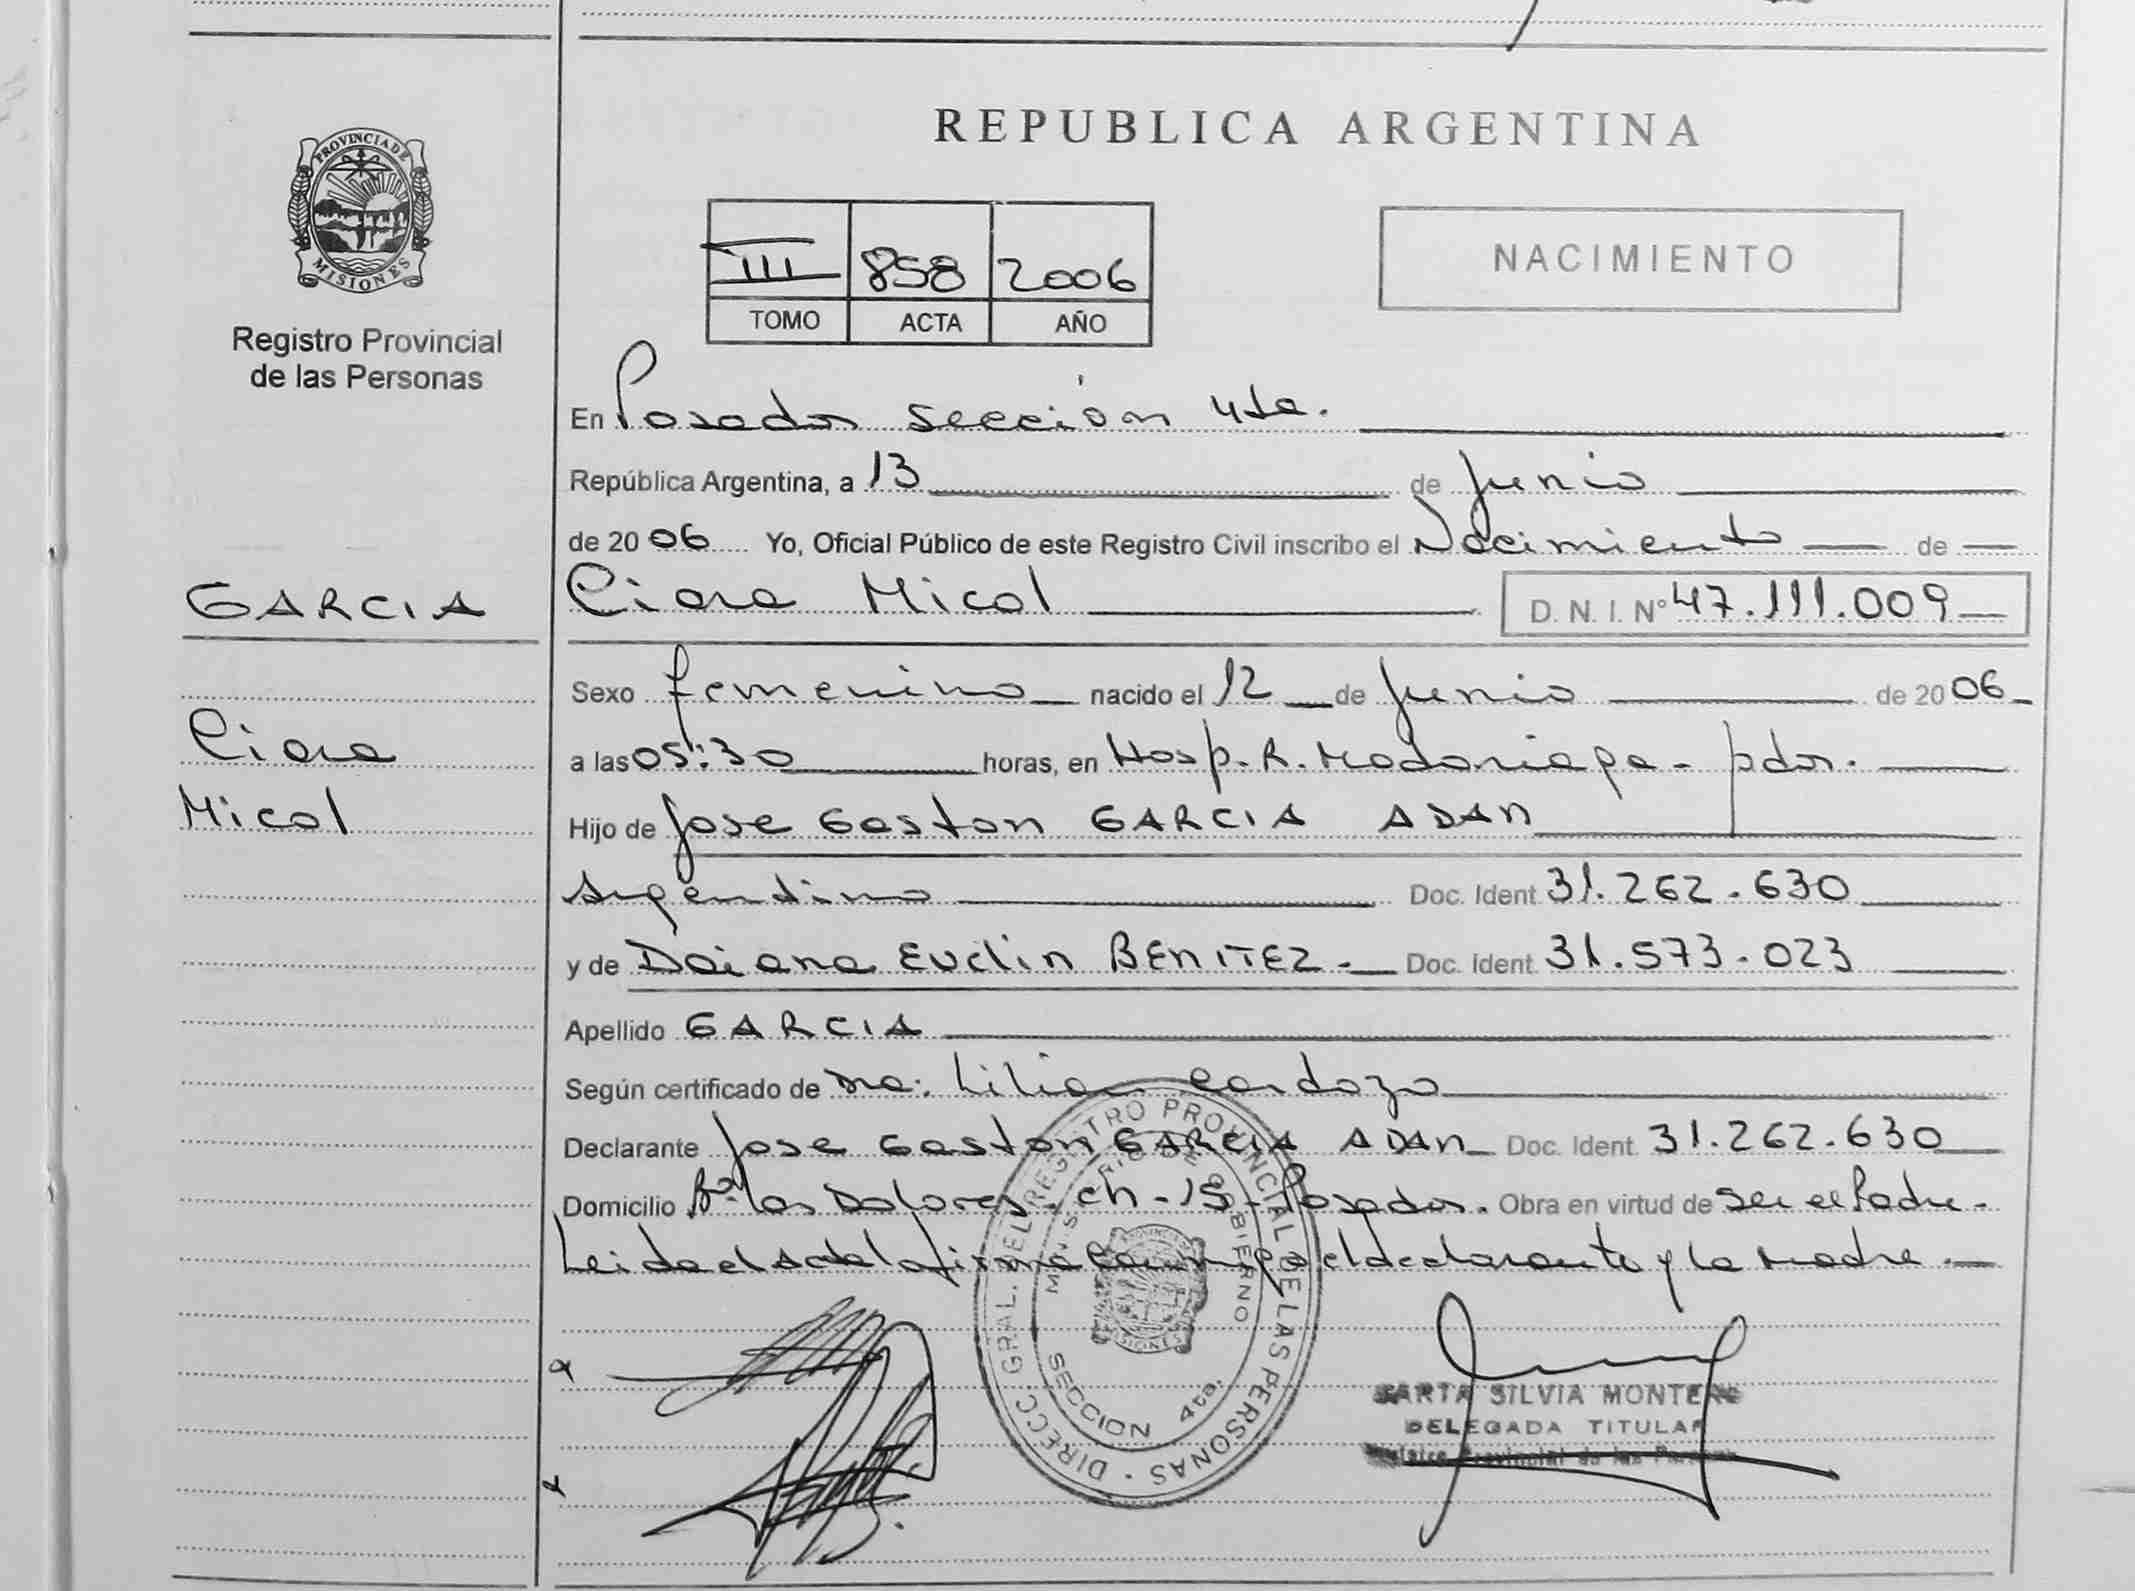 PROVINCIA DE
MISIONES
Registro Provincial
de las Personas
GARCIA
Ciara
Micol
REPUBLICA ARGENTINA
III 858 2006
TOMO ACTA AÑO
NACIMIENTO
En Posadas sección 4ta.
República Argentina, a 13 de Junio
de 2006 Yo, Oficial Público de este Registro Civil inscribo el Nacimiento de
Ciara Micol D. N. I. N° 47.111.009
Sexo femenino nacido el 12 de Junio de 2006
a las 05:30 horas, en Hosp. R. Madariaga - pdas.
Hijo de Jose Gaston GARCIA ADAN
Argentino Doc. Ident. 31.262.630
y de Daiana Evelin BENITEZ.- Doc. Ident. 31.573.023
Apellido GARCIA
Según certificado de Dra: Lilian Cardozo
Declarante Jose Gaston GARCIA ADAN Doc. Ident. 31.262.630
Domicilio Bº. los Dolores. ch - 15 - Posadas. Obra en virtud de ser el Padre.
Leida el Acta la firma conmigo el declarante y la Madre.
DIRECC. GRAL. DEL REGISTRO PROVINCIAL DE LAS PERSONAS
MINISTERIO DE GOBIERNO
SECCION 4ta.
SILVIA MONTERO
DELEGADA TITULAR
Registro Provincial de las Personas